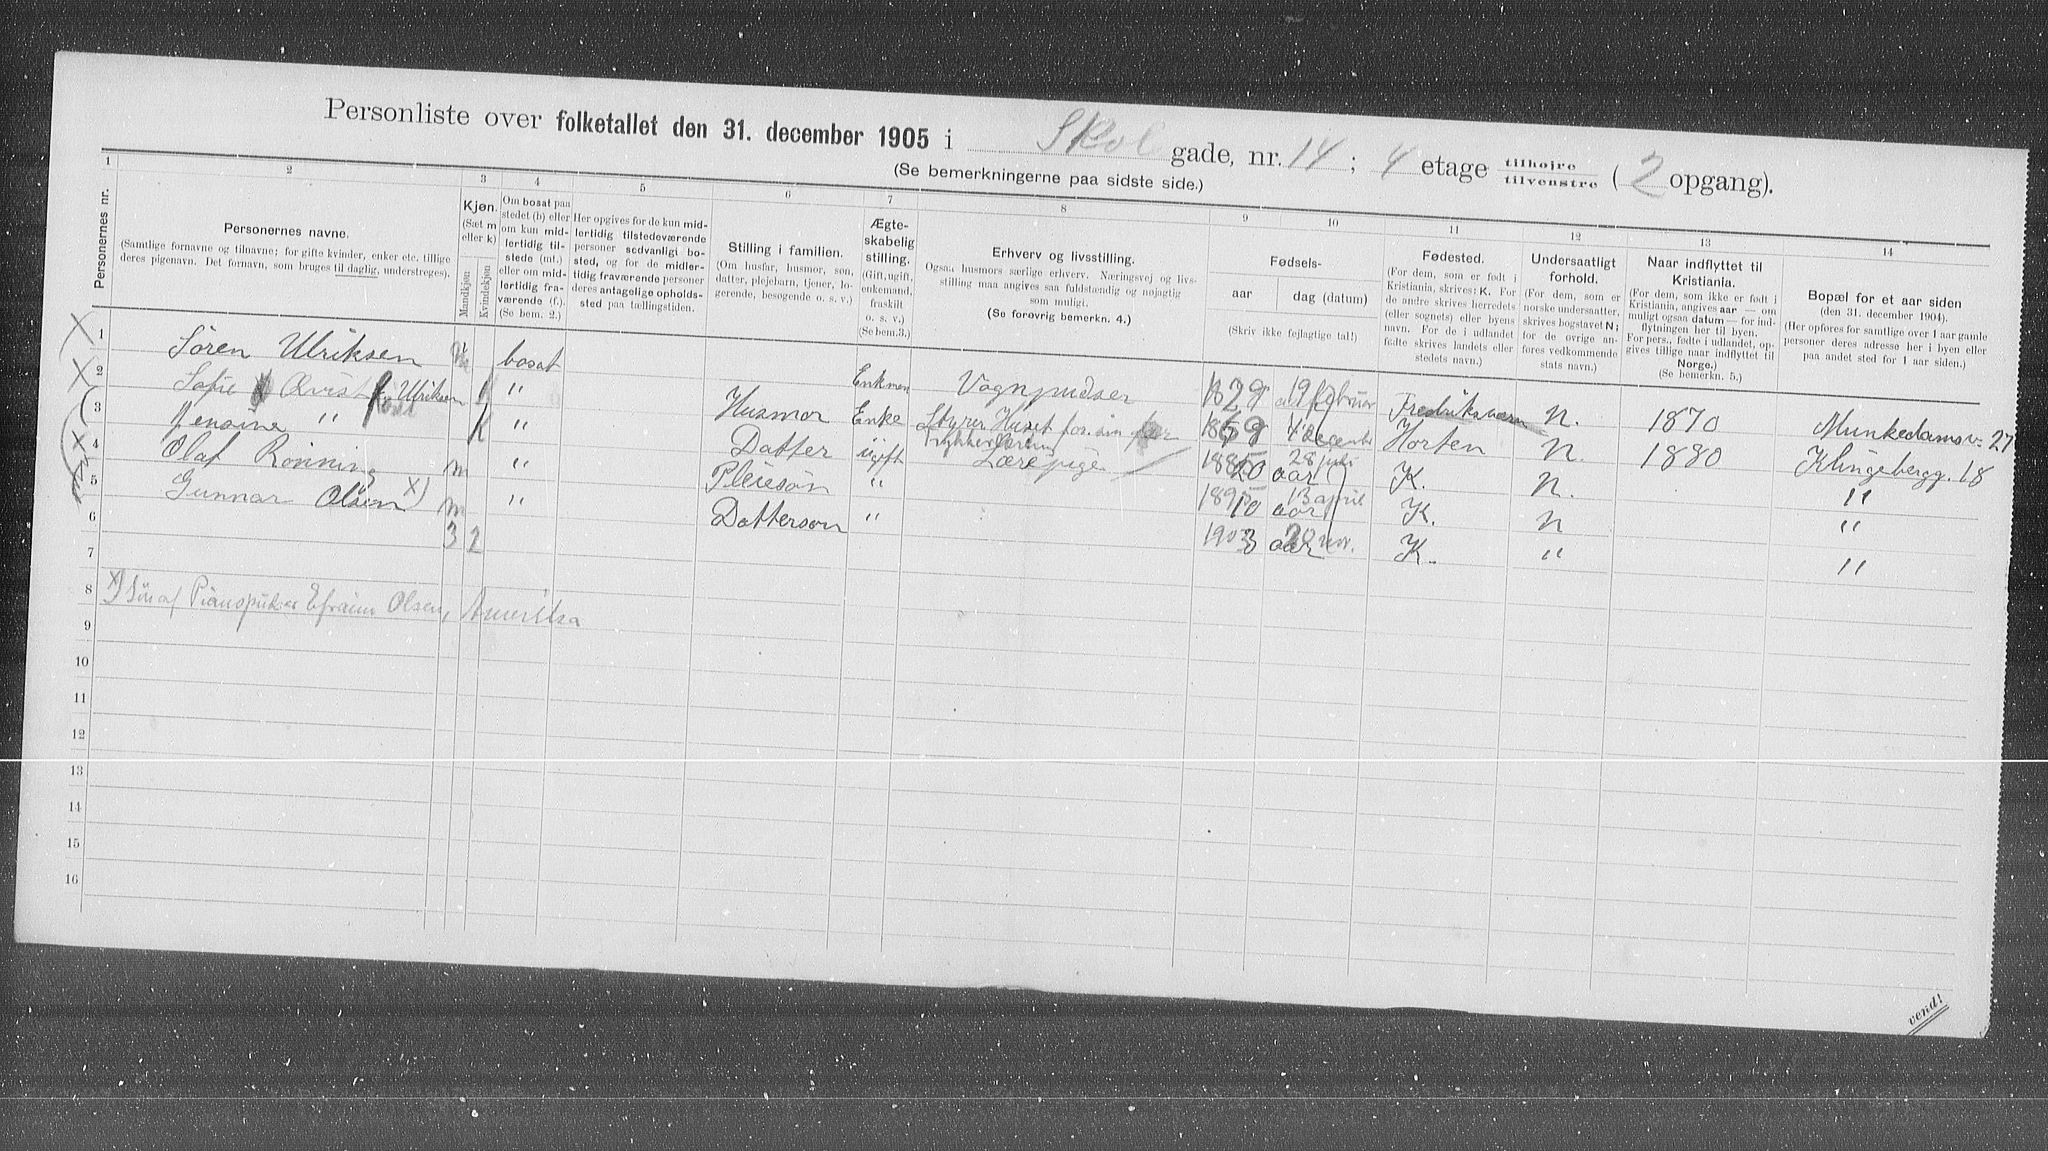 Personliste over folketallet den 31. december 1905 i Skol gade, nr. 14 ; 4 etage tilhøjre / tilvenstre ( 2 opgang).
(Se bemerkningerne paa sidste side.)
1 2 3 4 5 6 7 8 9 10 11 12 13 14
Personernes nr.
Personernes navne.
(Samtlige fornavne og tilnavne; for gifte kvinder, enker etc. tillige
deres pigenavn. Det fornavn, som bruges til daglig, understreges).
Kjøn.
(Sæt m
eller k)
Mandkjøn
Kvindekjøn
Om bosat paa
stedet (b) eller
om kun mid-
lertidig til-
stede (mt.)
eller om mid-
lertidig fra-
værende (f.).
(Se bem. 2.)
Her opgives for de kun mid-
lertidig tilstedeværende
personer sedvanligi bo-
sted, og for de midler-
tidig fraværende personer
deres antagelige opholds-
sted paa tællingstiden.
Stilling i familien.
(Om husfar, husmor, søn,
datter, plejebarn, tjener, lo-
gerende, besøgende o. s. v.)
Ægte-
skabelig
stilling.
(Gift, ugift,
enkemand,
fraskilt
o. s. v.)
(Se bem. 3.)
Erhverv og livsstilling.
Ogsaa husmors særlige erhverv. Næringsvej og livs-
stilling maa angives saa fuldstændig og nøjagtig
som muligt.
(Se forøvrig bemerkn. 4.)
Fødsels-
aar dag (datum)
(Skriv ikke fejlagtige tal!)
Fødested.
(For dem, som er født i
Kristiania, skrives: K. For
de andre skrives herredets
(eller sognets) eller byens
navn. For de i udlandet
fødte skrives landets eller
stedets navn.)
Undersaatligt
forhold.
(For dem, som er
norske undersaatter,
skrives bogstavet N;
for de øvrige an-
føres vedkommende
stats navn.)
Naar indflyttet til
Kristiania.
(For dem, som ikke er født i
Kristiania, angives aar — om
muligt ogsaa datum — for ind-
flytningen her til byen.
For pers., fødte i udlandet, op-
gives tillige naar indflyttet til
Norge.)
(Se bemerkn. 5.)
Bopæl for et aar siden
(den 31. december 1904).
(Her opføres for samtlige over 1 aar gamle
personer deres adresse her i byen eller
paa andet sted for 1 aar siden.)
X 1 Sören Ulriksen bosat Enkmen Vognpudser 1829 19 februar Fredriksværn N. 1870 Munkedamsv. 27
X 2 Sofie Qvist Ulriksen k " Husmor Enke Styrer Huset for sin 1859 Horten N. 1880 Klingebergg. 18
3 Jensine " k " Datter ugift Lærepige 1885 20 aar 28 juli K. N. "
X 4 Olaf Rönning m " Pleiesön " 1895 10 aar 13 april K. N "
5 Gunnar Olsen X) m " Dattersön " 1902 3 aar nov. K. " "
6 3 2
7
8 X) Sön af Pianopudser Efraim Olsen, Amerika
9
10
11
12
13
14
15
16
vend!